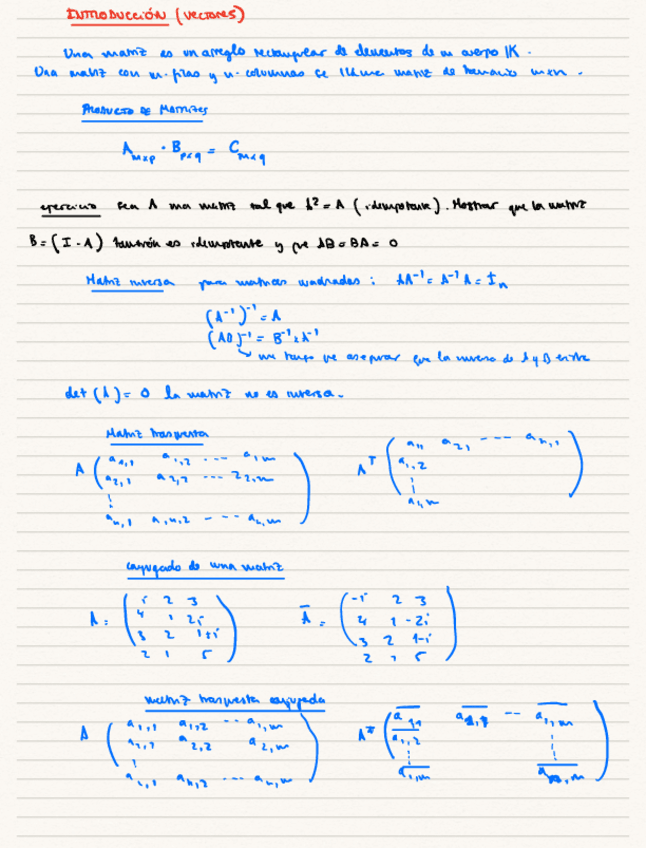 INTRODUCCIÓN (VECTORES)
Una matriz es un arreglo rectangular de elementos de un cuerpo IK.
Una matriz con m-filas y n-columnas se llama matriz de tamaño mxn.
PRODUCTO DE MATRICES
A_{mxp} · B_{pxq} = C_{mxq}
ejercicio sea A una matriz tal que A² = A (idempotente). Mostrar que la matriz
B = (I - A) también es idempotente y que AB = BA = 0
Matriz inversa para matrices cuadradas: AA⁻¹ = A⁻¹A = I_n
(A⁻¹)⁻¹ = A
(AB)⁻¹ = B⁻¹ x A⁻¹
que asegurar que la inversa de A y B existe
det (A) = 0 la matriz no es inversa.
Matriz traspuesta
A ( a_{1,1} a_{1,2} ... a_{1,m} A^T ( a_{11} a_{2,1} ---- a_{n,1} )
a_{2,1} a_{2,2} --- 2_{2,m} a_{1,2}
a_{n,1} a_{n,2} - --- a_{n,m} ) a_{1,m}
conjugado de una matriz
A = ( i 2 3 Ā = ( -i 2 3
4 1 2i 4 1 -2i
3 2 1+i 3 2 1-i
2 1 5 ) 2 1 5 )
matriz traspuesta conjugada
A ( a_{1,1} a_{1,2} -- a_{1,m} A* (
a_{2,1} a_{2,2} a_{2,m} a_{1,2}
a_{n,1} a_{n,2} --- a_{n,m} ) a_{1,m}